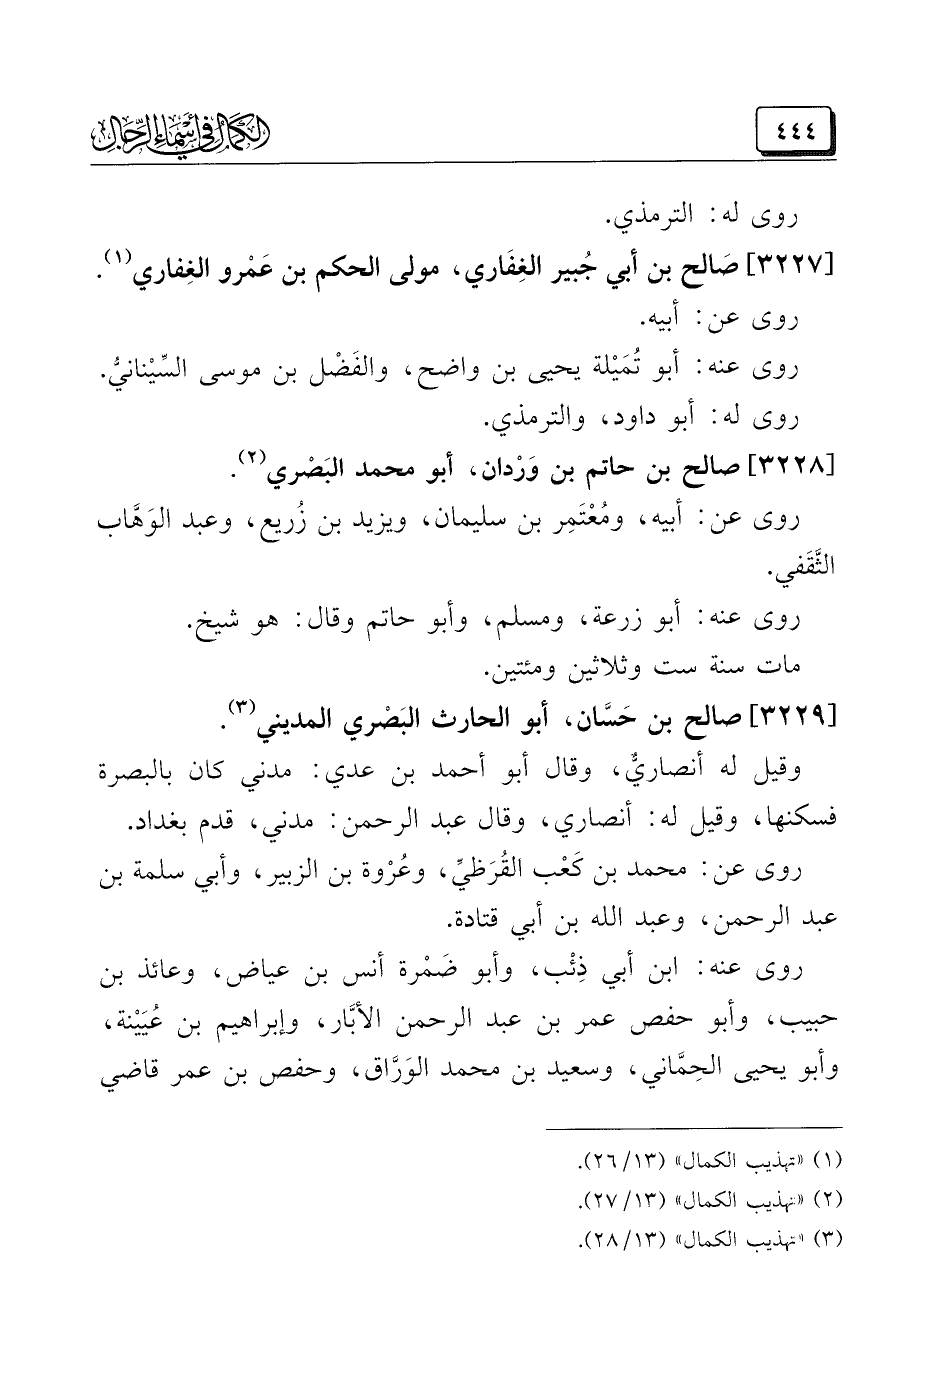 ٤٤٤
الكمال في أسماء الرجال
روى له: الترمذي.
[٣٢٢٧] صَالح بن أبي جُبير الغِفَاري، مولى الحكم بن عَمْرو الغِفاري(١).
روى عن: أبيه.
روى عنه: أبو تُمَيْلة يحيى بن واضح، والفَضْل بن موسى السِّيْنانيُّ.
روى له: أبو داود، والترمذي.
[٣٢٢٨] صالح بن حاتم بن وَرْدان، أبو محمد البَصْري(٢).
روى عن: أبيه، ومُعْتَمِر بن سليمان، ويزيد بن زُريع، وعبد الوَهَّاب
الثَّقَفي.
روى عنه: أبو زرعة، ومسلم، وأبو حاتم وقال: هو شيخ.
مات سنة ست وثلاثين ومئتين.
[٣٢٢٩] صالح بن حَسَّان، أبو الحارث البَصْري المديني(٣).
وقيل له أنصاريٌّ، وقال أبو أحمد بن عدي: مدني كان بالبصرة
فسكنها، وقيل له: أنصاري، وقال عبد الرحمن: مدني، قدم بغداد.
روى عن: محمد بن كَعْب القُرَظيِّ، وعُرْوة بن الزبير، وأبي سلمة بن
عبد الرحمن، وعبد الله بن أبي قتادة.
روى عنه: ابن أبي ذِئْب، وأبو ضَمْرة أنس بن عياض، وعائذ بن
حبيب، وأبو حفص عمر بن عبد الرحمن الأبَّار، وإبراهيم بن عُيَيْنة،
وأبو يحيى الحِمَّاني، وسعيد بن محمد الوَرَّاق، وحفص بن عمر قاضي
(١) «تهذيب الكمال» (١٣/ ٢٦).
(٢) «تهذيب الكمال» (١٣/ ٢٧).
(٣) «تهذيب الكمال» (١٣/ ٢٨).